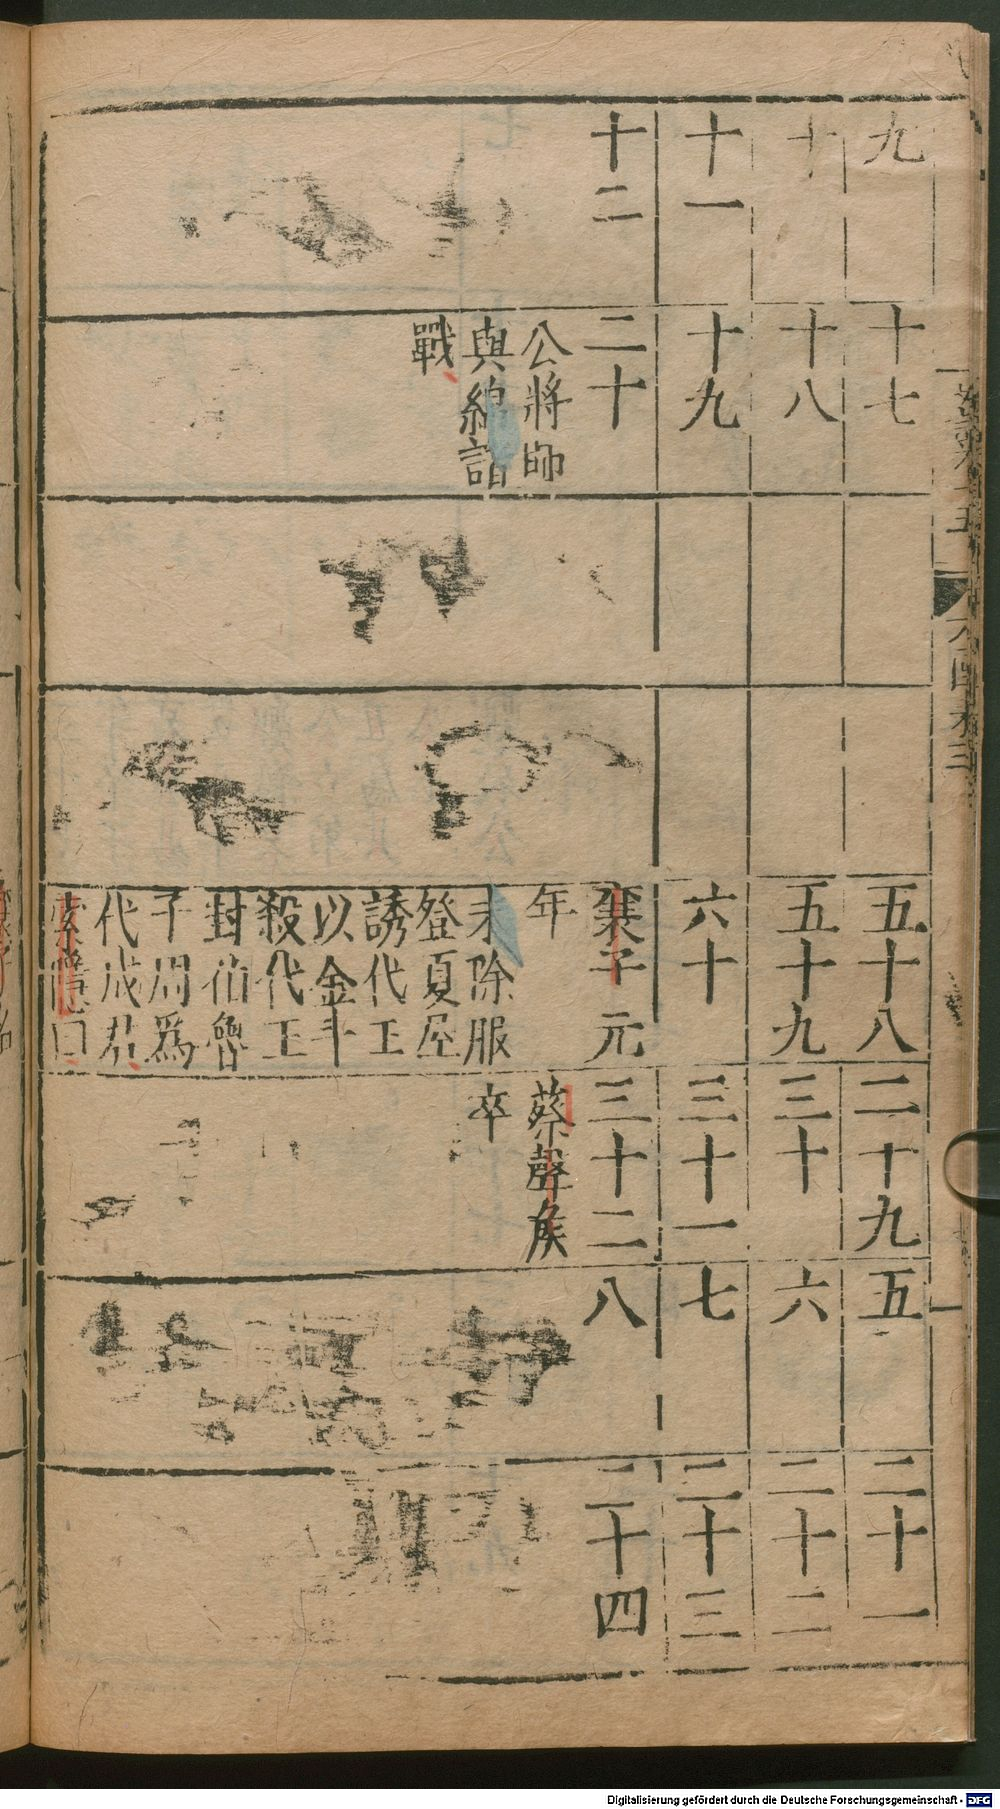 九
十七
五十八
二十九
五
二十一
十
十八
五十九
三十
六
二十二
十一
十九
六十
三十一
七
二十三
十二
二十
公將師
與綿諸
戰
襄子元
年
未除服
登夏屋
誘代王
以金斗
殺代王
封伯魯
子周爲
代成君
索隱曰
三十二
蔡聲侯
卒
八
二十四
Digitalisierung gefördert durch die Deutsche Forschungsgemeinschaft - DFG